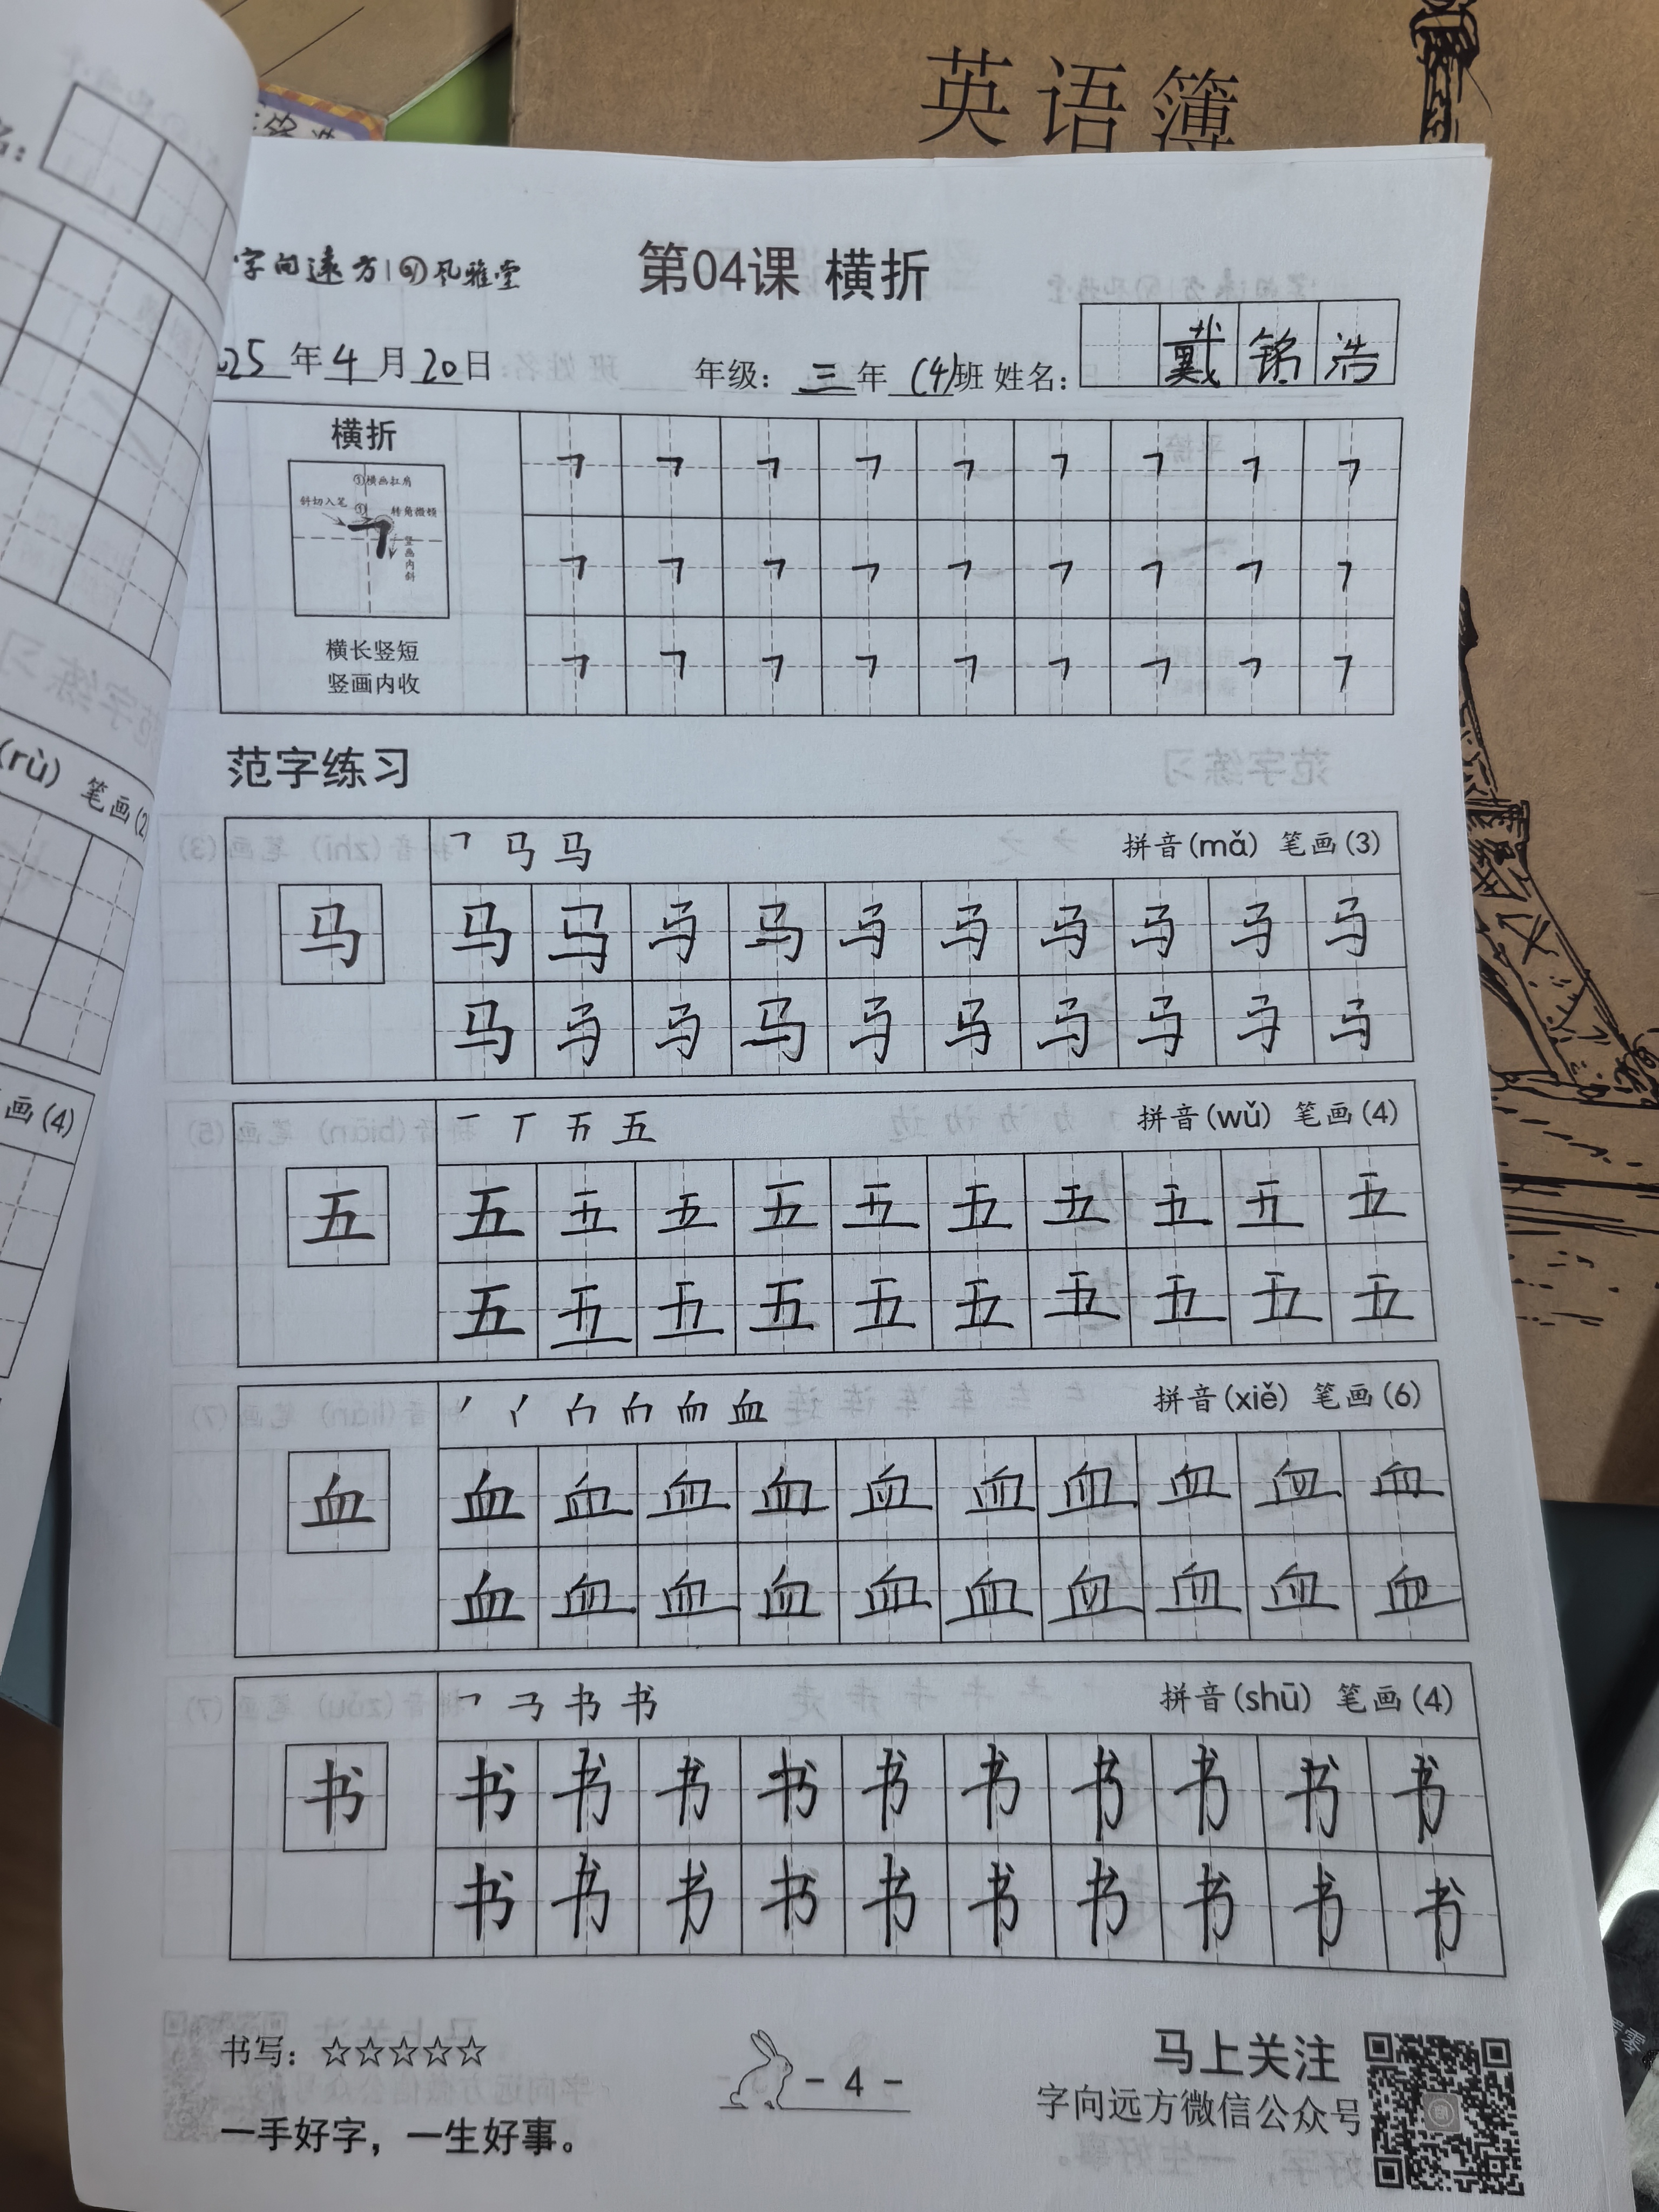 英语簿
字向远方 风雅堂
第04课 横折
025年4月20日 年级：三年(4)班 姓名：戴铭浩
横折
③横画扛肩
斜切入笔 ① 转角微顿
竖画内斜
横长竖短
竖画内收
范字练习
拼音(mǎ) 笔画(3)
马 马 马 马 马 马 马 马 马 马 马
马 马 马 马 马 马 马 马 马 马
五 拼音(wǔ) 笔画(4)
五 五 五 五 五 五 五 五 五 五 五
五 五 五 五 五 五 五 五 五 五
血 拼音(xiě) 笔画(6)
血 血 血 血 血 血 血 血 血 血 血
血 血 血 血 血 血 血 血 血 血
书 拼音(shū) 笔画(4)
书 书 书 书 书 书 书 书 书 书 书
书 书 书 书 书 书 书 书 书 书
书写：☆☆☆☆☆
一手好字，一生好事。
- 4 -
马上关注
字向远方微信公众号
(rù) 笔画(2)
画(4)